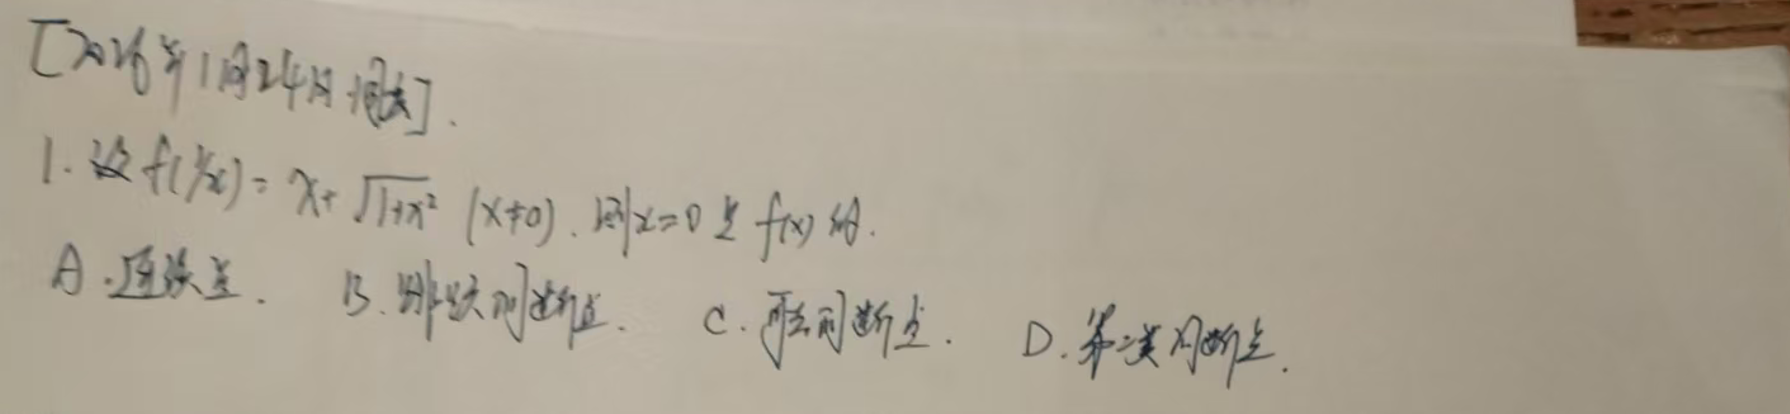 [2026年1月24日 周六].
1. 设 f(1/x) = x + √(1+x²) (x≠0). 则 x=0 是 f(x) 的.
A. 连续点. B. 跳跃间断点. C. 可去间断点. D. 第二类间断点.